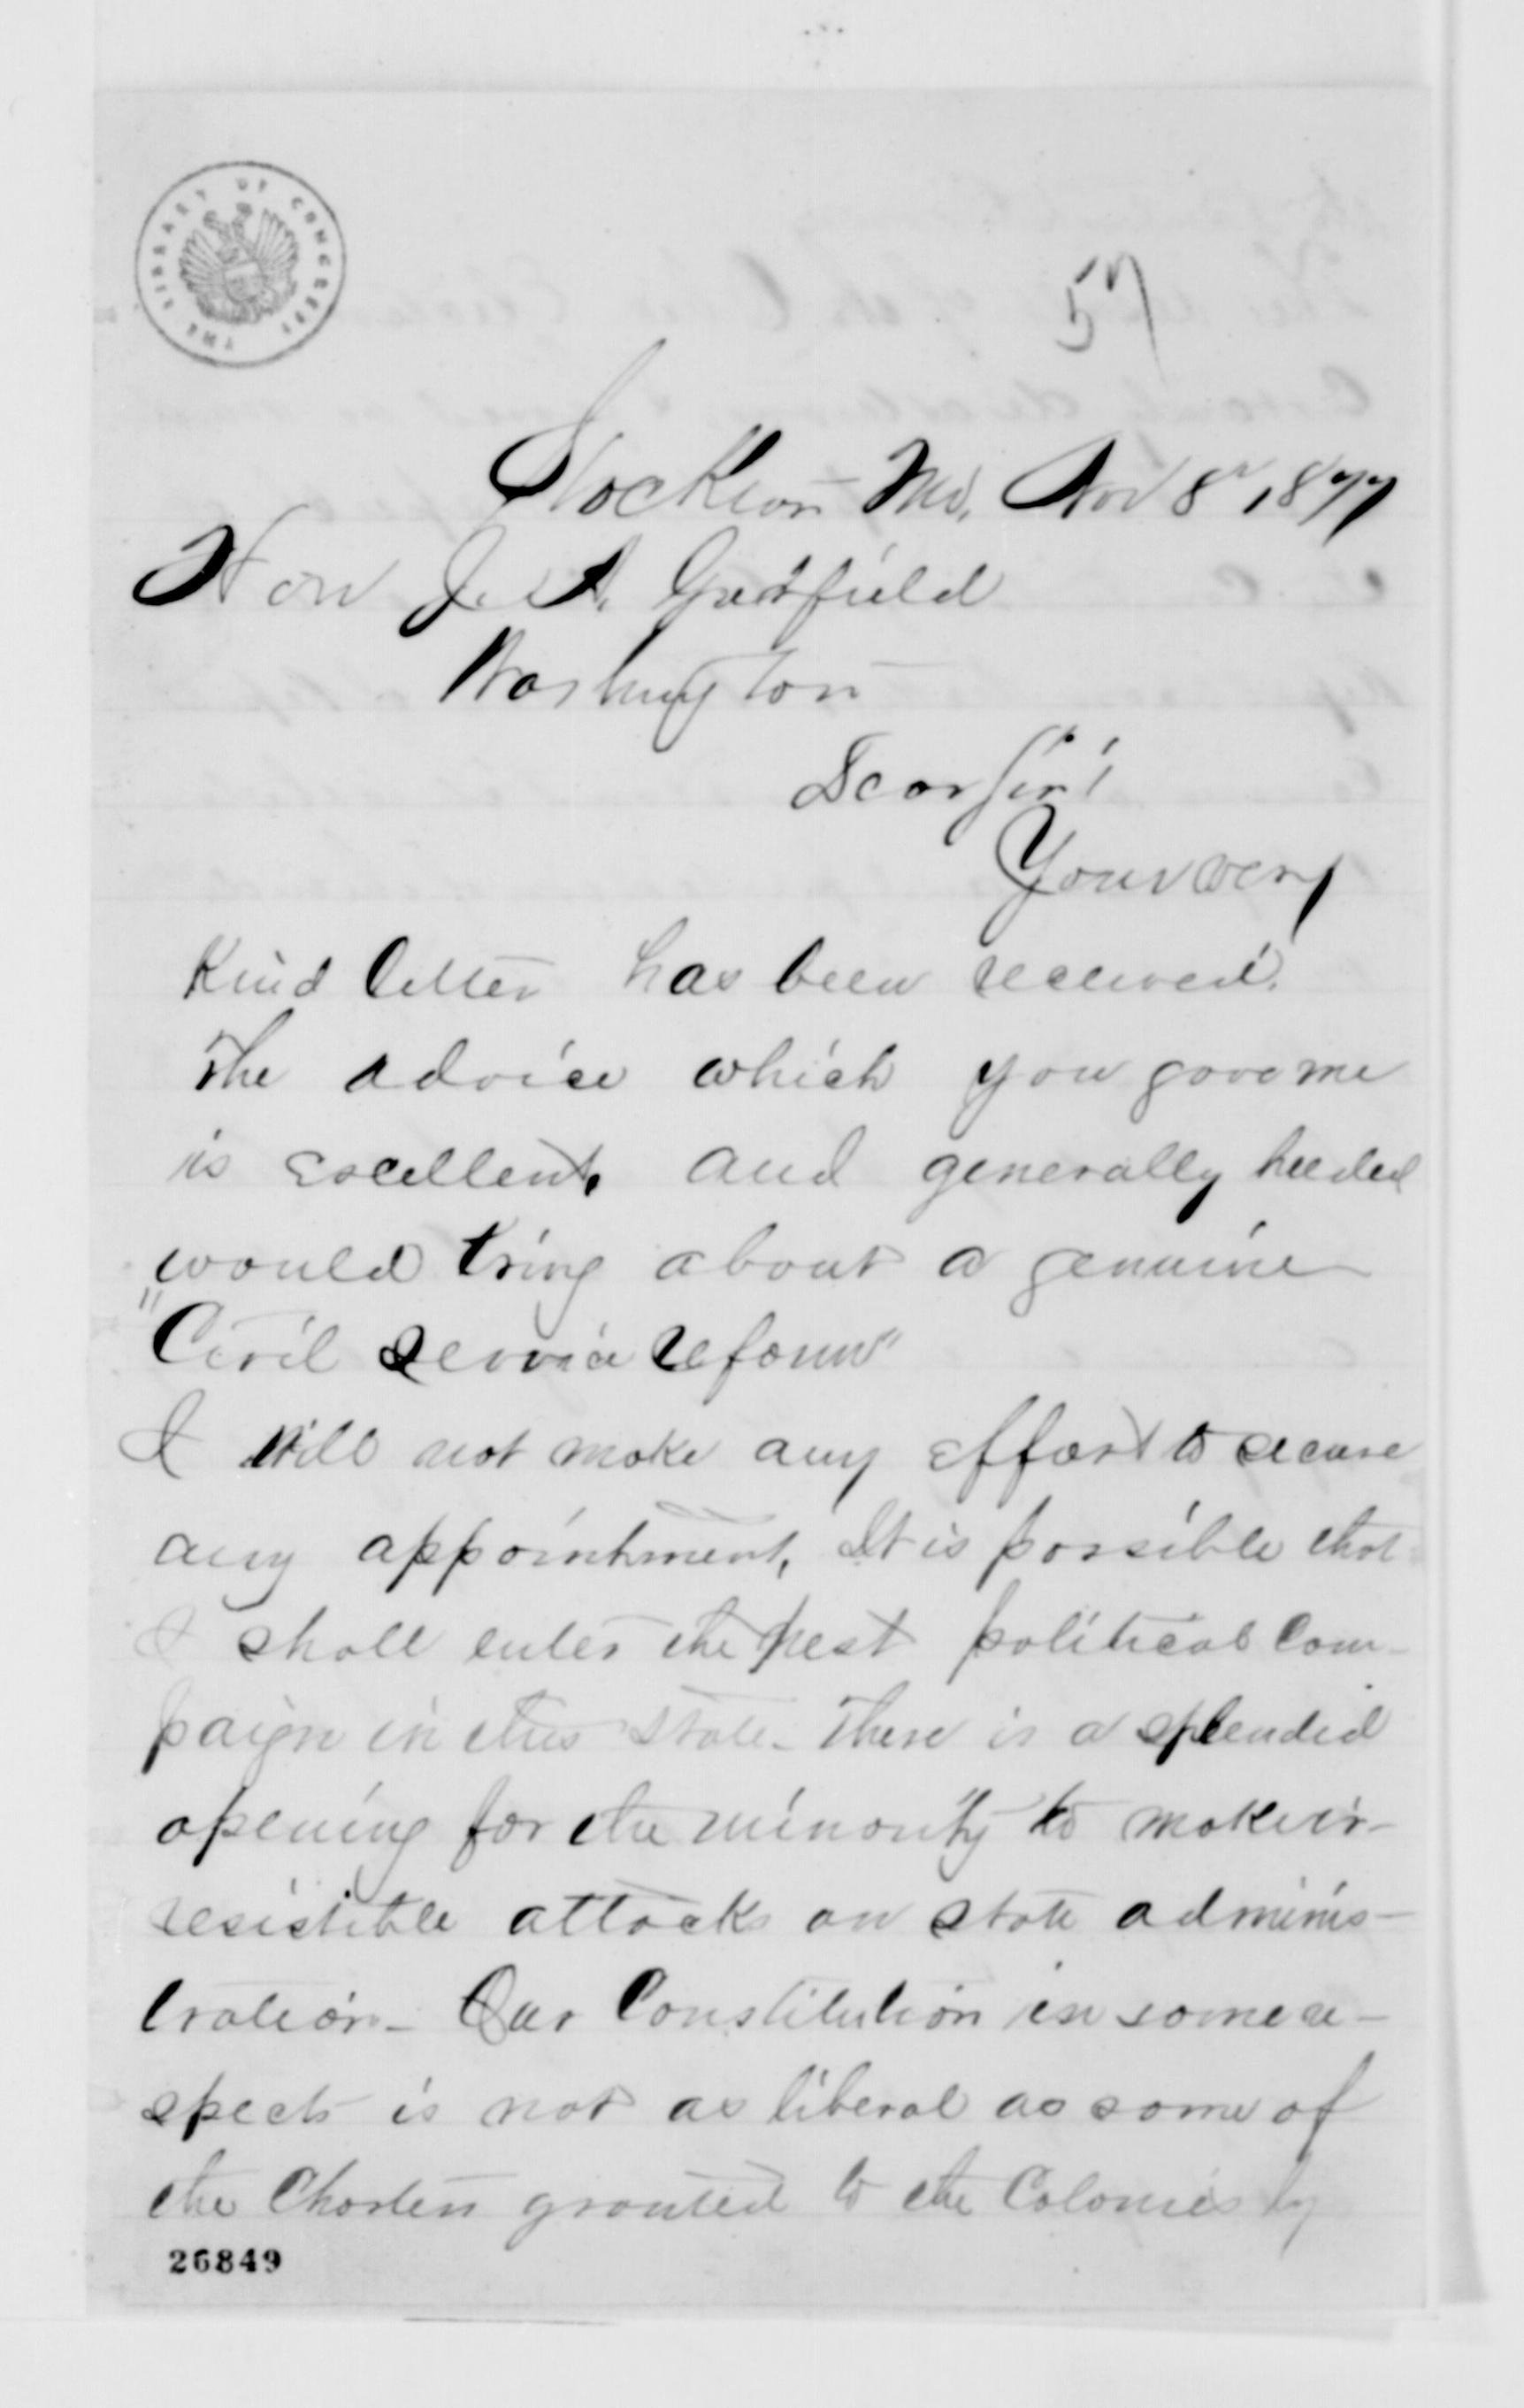 THE LIBRARY OF CONGRESS
57
Stockton Mo, Nov 8" 1877
Hon J. A. Garfield
Washington
Dear Sir!
Your very
Kind letter has been received.
The advice which you gave me
is excellent, and generally heeded
would bring about a genuine
"Civil service reform"
I will not make any effort to secure
any appointment, It is possible that
I shall enter the next political Cam-
paign in this state - There is a splendid
opening for the minority to make ir-
resistible attacks on state adminis-
tration - Our Constitution in some re-
spects is not as liberal as some of
the Charters granted to the Colonies by
26849